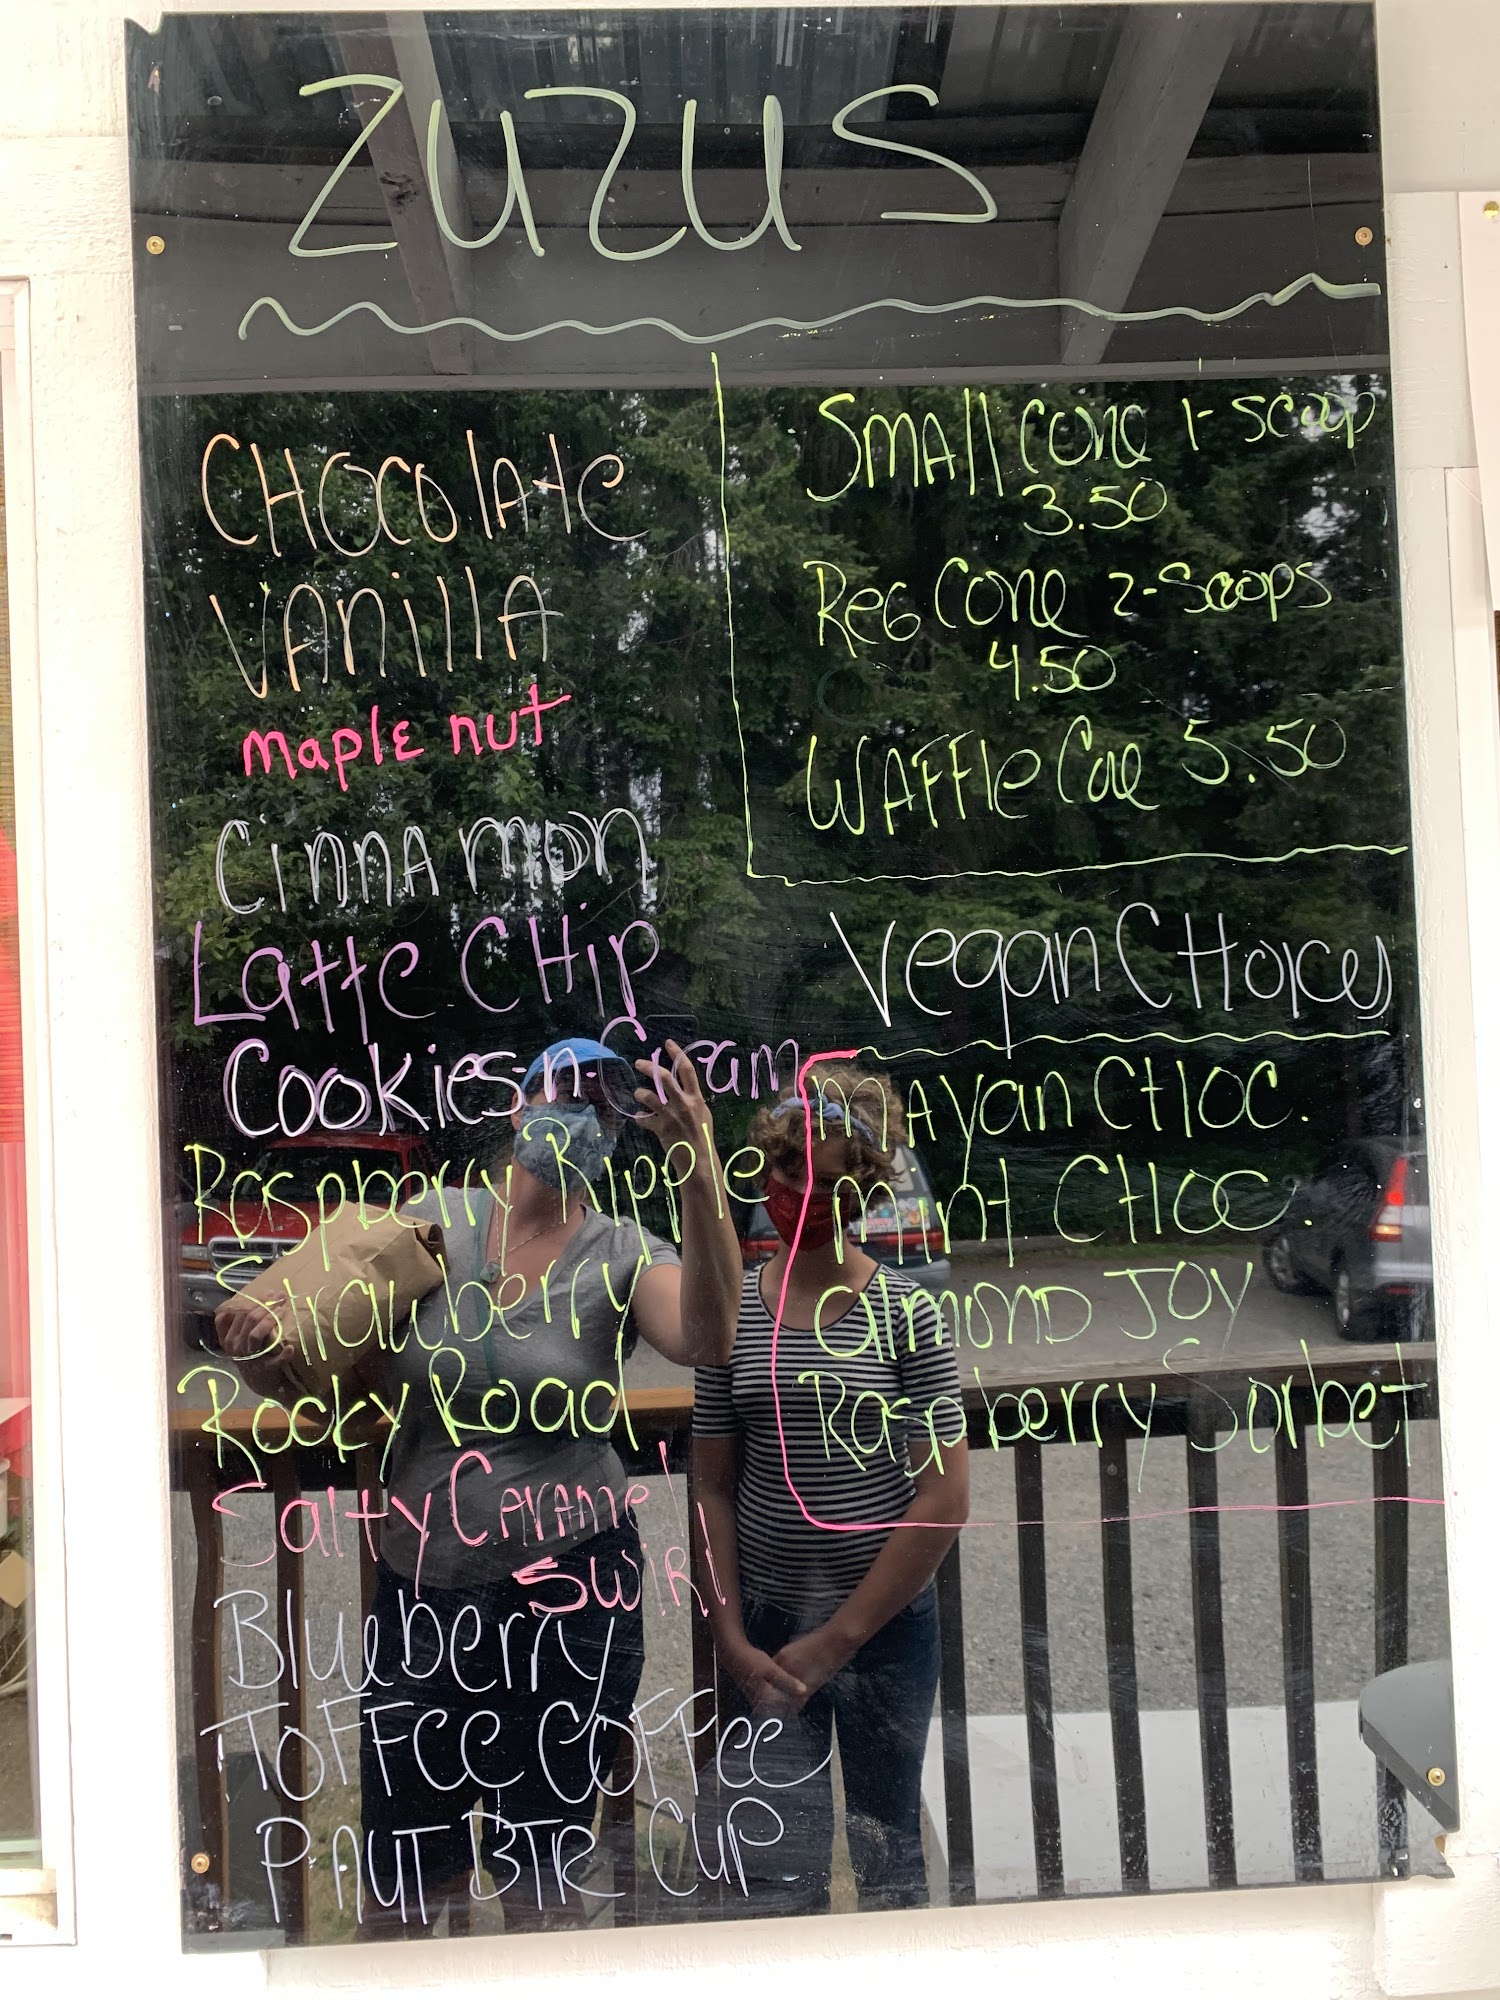 ZUZUS
CHOCOlAte
VANillA
maple nut
CinnAmon
Latte CHip
Cookies-n-Cream
Raspberry Ripple
Strawberry
Rocky Road
Salty CARAmel
SwiRl
Blueberry
ToFFee CoFFee
PNUT BTR CUP
SMAll Cone 1-Scoop
3.50
ReG Cone 2-Scoops
4.50
WAFFle Cone 5.50
Vegan CHoices
MAyan CHOC.
Mint CHOC.
almond JOY
Raspberry Sorbet